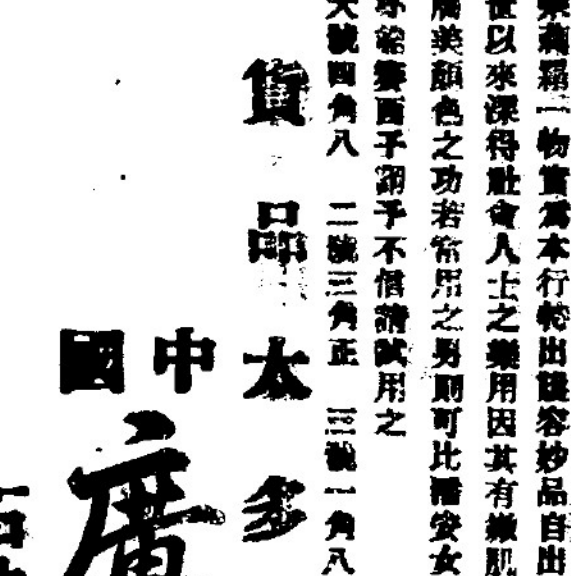 霜一物實為本行特出護容妙品自出
世以來深得社會人士之樂用因其有嫩肌
美顏色之功若常用之男則可比潘安女
賽西子詡予不信請試用之
大號四角八 二號三角正 三號一角八
貨品太多
中國
廣